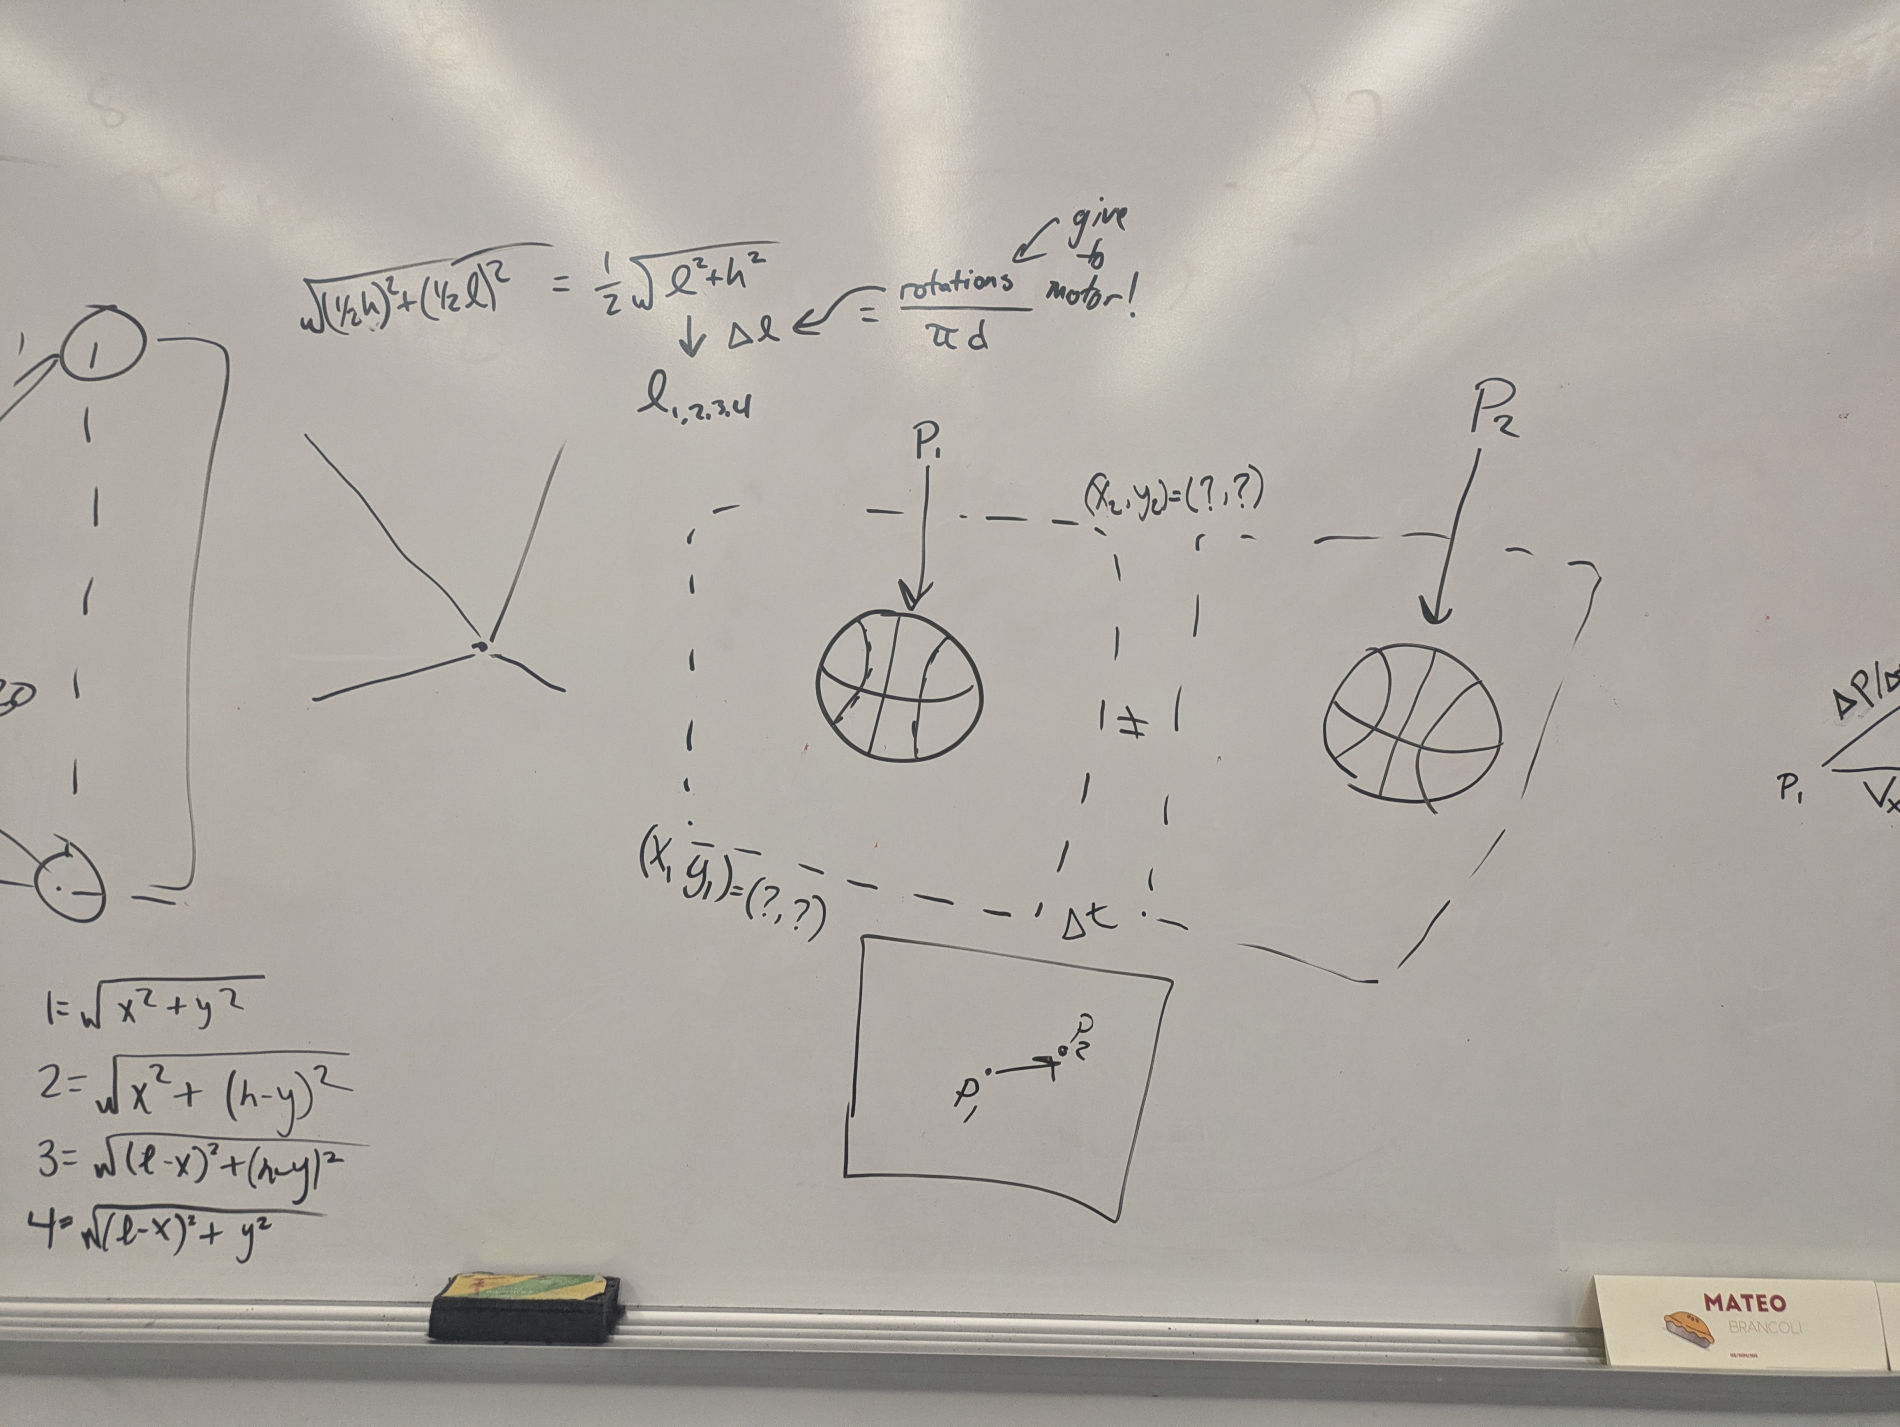 √(½h)²+(½l)² = ½√l²+h² = rotations / πd
give
to
motor!
↓ Δl
l1,2,3,4
1
P1
P2
(x2, y2)=(?,?)
≠
ΔP/Δ
P1
Vx
(x1 y1)=(?,?)
Δt
P2
P1
1=√x²+y²
2=√x²+(h-y)²
3=√(l-x)²+(h-y)²
4=√(l-x)²+y²
MATEO
BRANCOLI